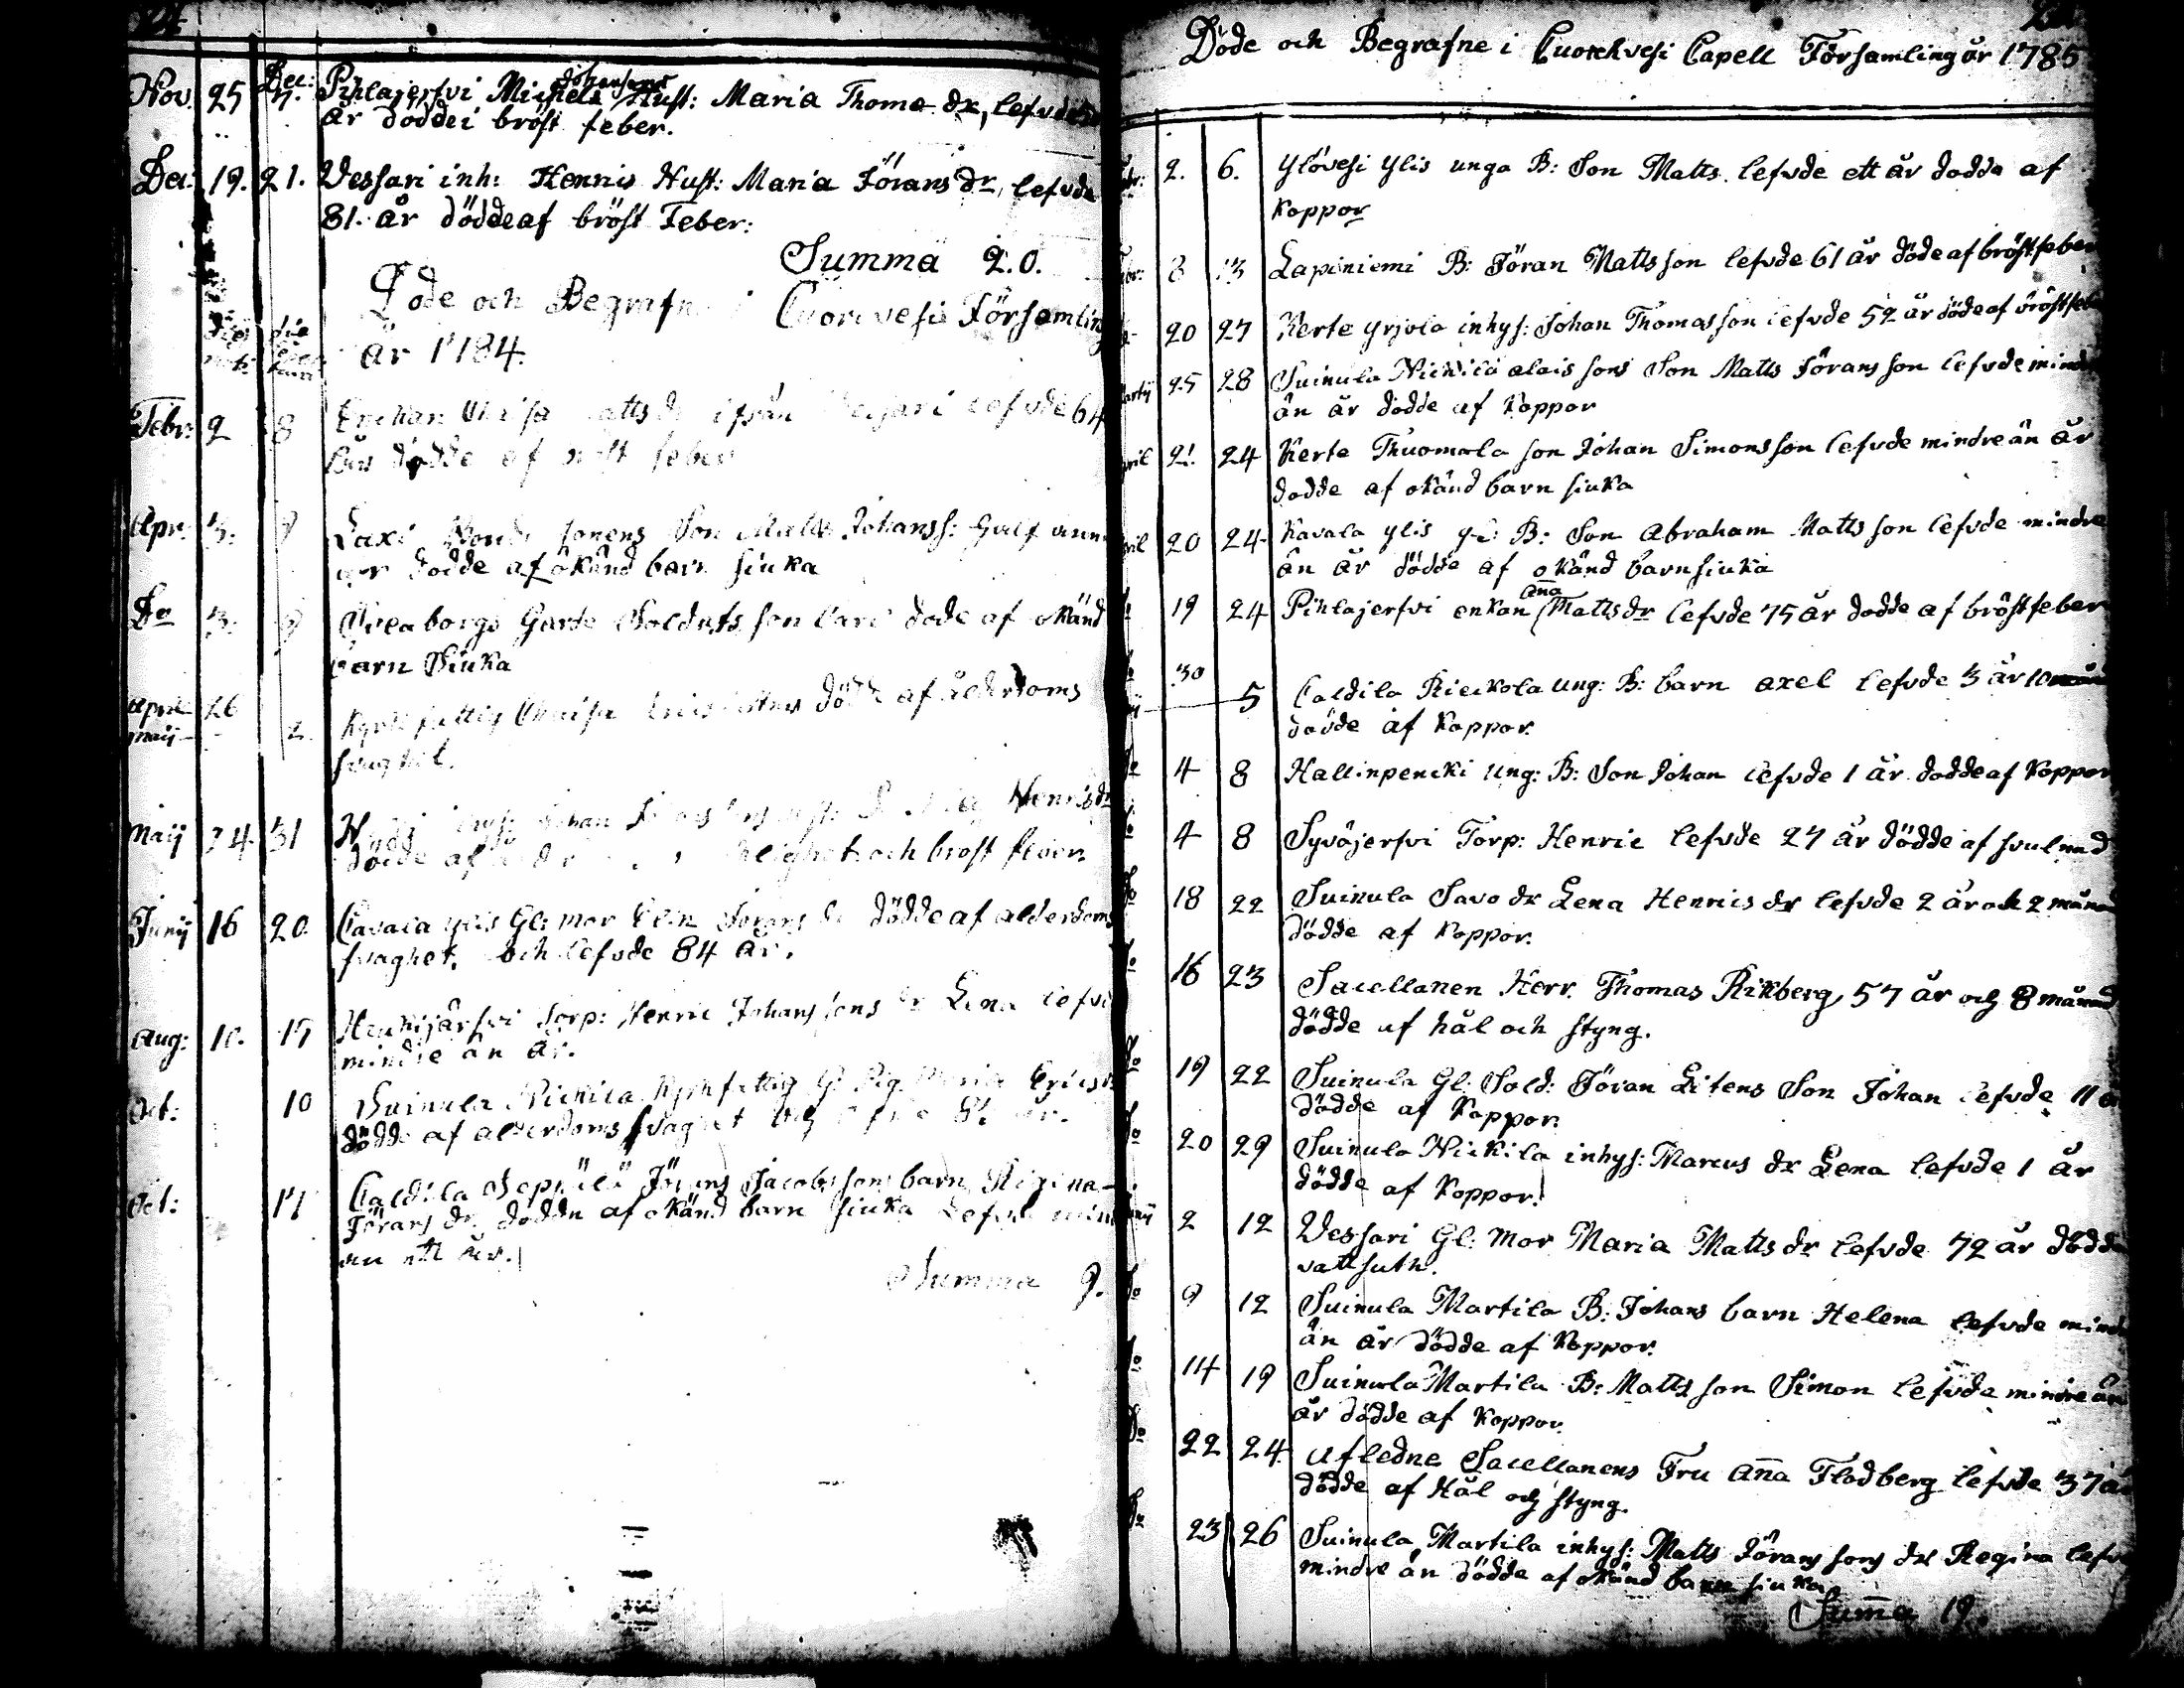 24
Nov. 25 Dec: 7. Pihlajerfvi Michels Johansons Hust: Maria Thoma dr, lefvde
år döddei bröst feber.
Dec: 19. 21. Vessari inh: Henrics Hust: Maria Jörans dr, lefvde
81. år döddeaf bröst Feber:
Summa 20.
Döde och Begrafne i Cuorevesi Församling
år 1784.
Febr: 2 8 Enckan Maisa Matts dr ifrån Vessari lefvde 64
år dödde af bröst feber
Apr: 3. 9 Laxi Bonde sonens Son Matts Johanss:
år dodde af okänd barn siuka
Do 3. 9 Sveaborgs Garde Soldats son Carl dode af okänd
barn Siuka
Aprill 26
Maij 2. Kyrk fattig Maisa dödde af ålderdoms
svaghet.
Maij 24 31 Johan Henrics dr
dödde af och bröst
Junij 16 20 Cavala ylis Gl: mor Elin Jörans dr dödde af alderdoms
svaghet, och lefvde 84 år.
Aug: 10. 17 Torp: Henric Johans sons dr Lena lefvde
mindre än år.
Oct: 10 Suinula Nickila Kyrk fattig Maria
dödde af alderdoms svaghet
Oct: 17 Caldila Seppälä Jörans Jacobs sons barn Regina
Jörans dr dödde af okänd barn siuka Lefvde
än ett år.
Summa 9.
Döde och Begrafne i Cuorehvesi Capell Församling år 1785
2. 6. Ylövesi Ylis unga B: Son Matts lefvde ett år dodde af
Koppor
8 13 Lapiniemi B: Jöran Matts son lefvde 61 år döde af bröstfeber
20 27 Kerte Yrjola inhys: Johan Thomas son lefvde 52 år döde af bröstfeber
Martij 25 28 Suinula Nickilä alais sons Son Matts Jörans son lefvde mindre
än år dodde af Koppor
April 21 24 Kerte Thuomola son Johan Simons son lefvde mindre än år
dodde af okänd barn siuka
April 20 24 Kavala ylis B: Son Abraham Matts son lefvde mindre
än år dödde af okänd barnsiuka
19 24 Pihlajerfvi enkan Aña Matts dr lefvde 75 år dodde af bröstfeber
30
5 Caldila Rieckola Ung: B: barn axel lefvde 3 år 10
dödde af Koppor.
Do 4 8 Hallinpencki Ung: B: Son Johan lefvde 1 år doddeaf Koppor
Do 4 8 Syväjerfvi Torp: Henric lefvde 27 år dödde af svulnad
Do 18 22 Suinula Savo dr Lena Henrics dr lefvde 2 år och 2 månad
dödde af Koppor.
Do 16 23 Sacellanen Herr. Thomas Rikberg, 57 år och 8 månad
dödde af hål och styng.
Do 19 22 Suinula Gl: Sold: Jöran Litens Son Johan lefvde 11 år
dödde af Koppor.
Do 20 29 Suinula Nickila inhys: Marcus dr Lena lefvde 1 år
dödde af Koppor.
2 12 Vessari Gl: Mor Maria Matts dr lefvde 72 år dödde
vattsuth.
Do 9 12 Suinula Martila B: Johans barn Helena lefvde mindre
än år dödde af Koppor.
Do 14 19 Suinula Martila B: Matts son Simon lefvde mindre än
år dödde af Koppor.
Do 22 24. Afledne Sacellanens Fru Aña Flodberg lefvde 37 år
dödde af Hål och styng.
Do 23 26 Suinula Martila inhys: Matts Jörans sons dr Regina lefvde
mindre än dödde af okänd barn siuka
Suma 19.